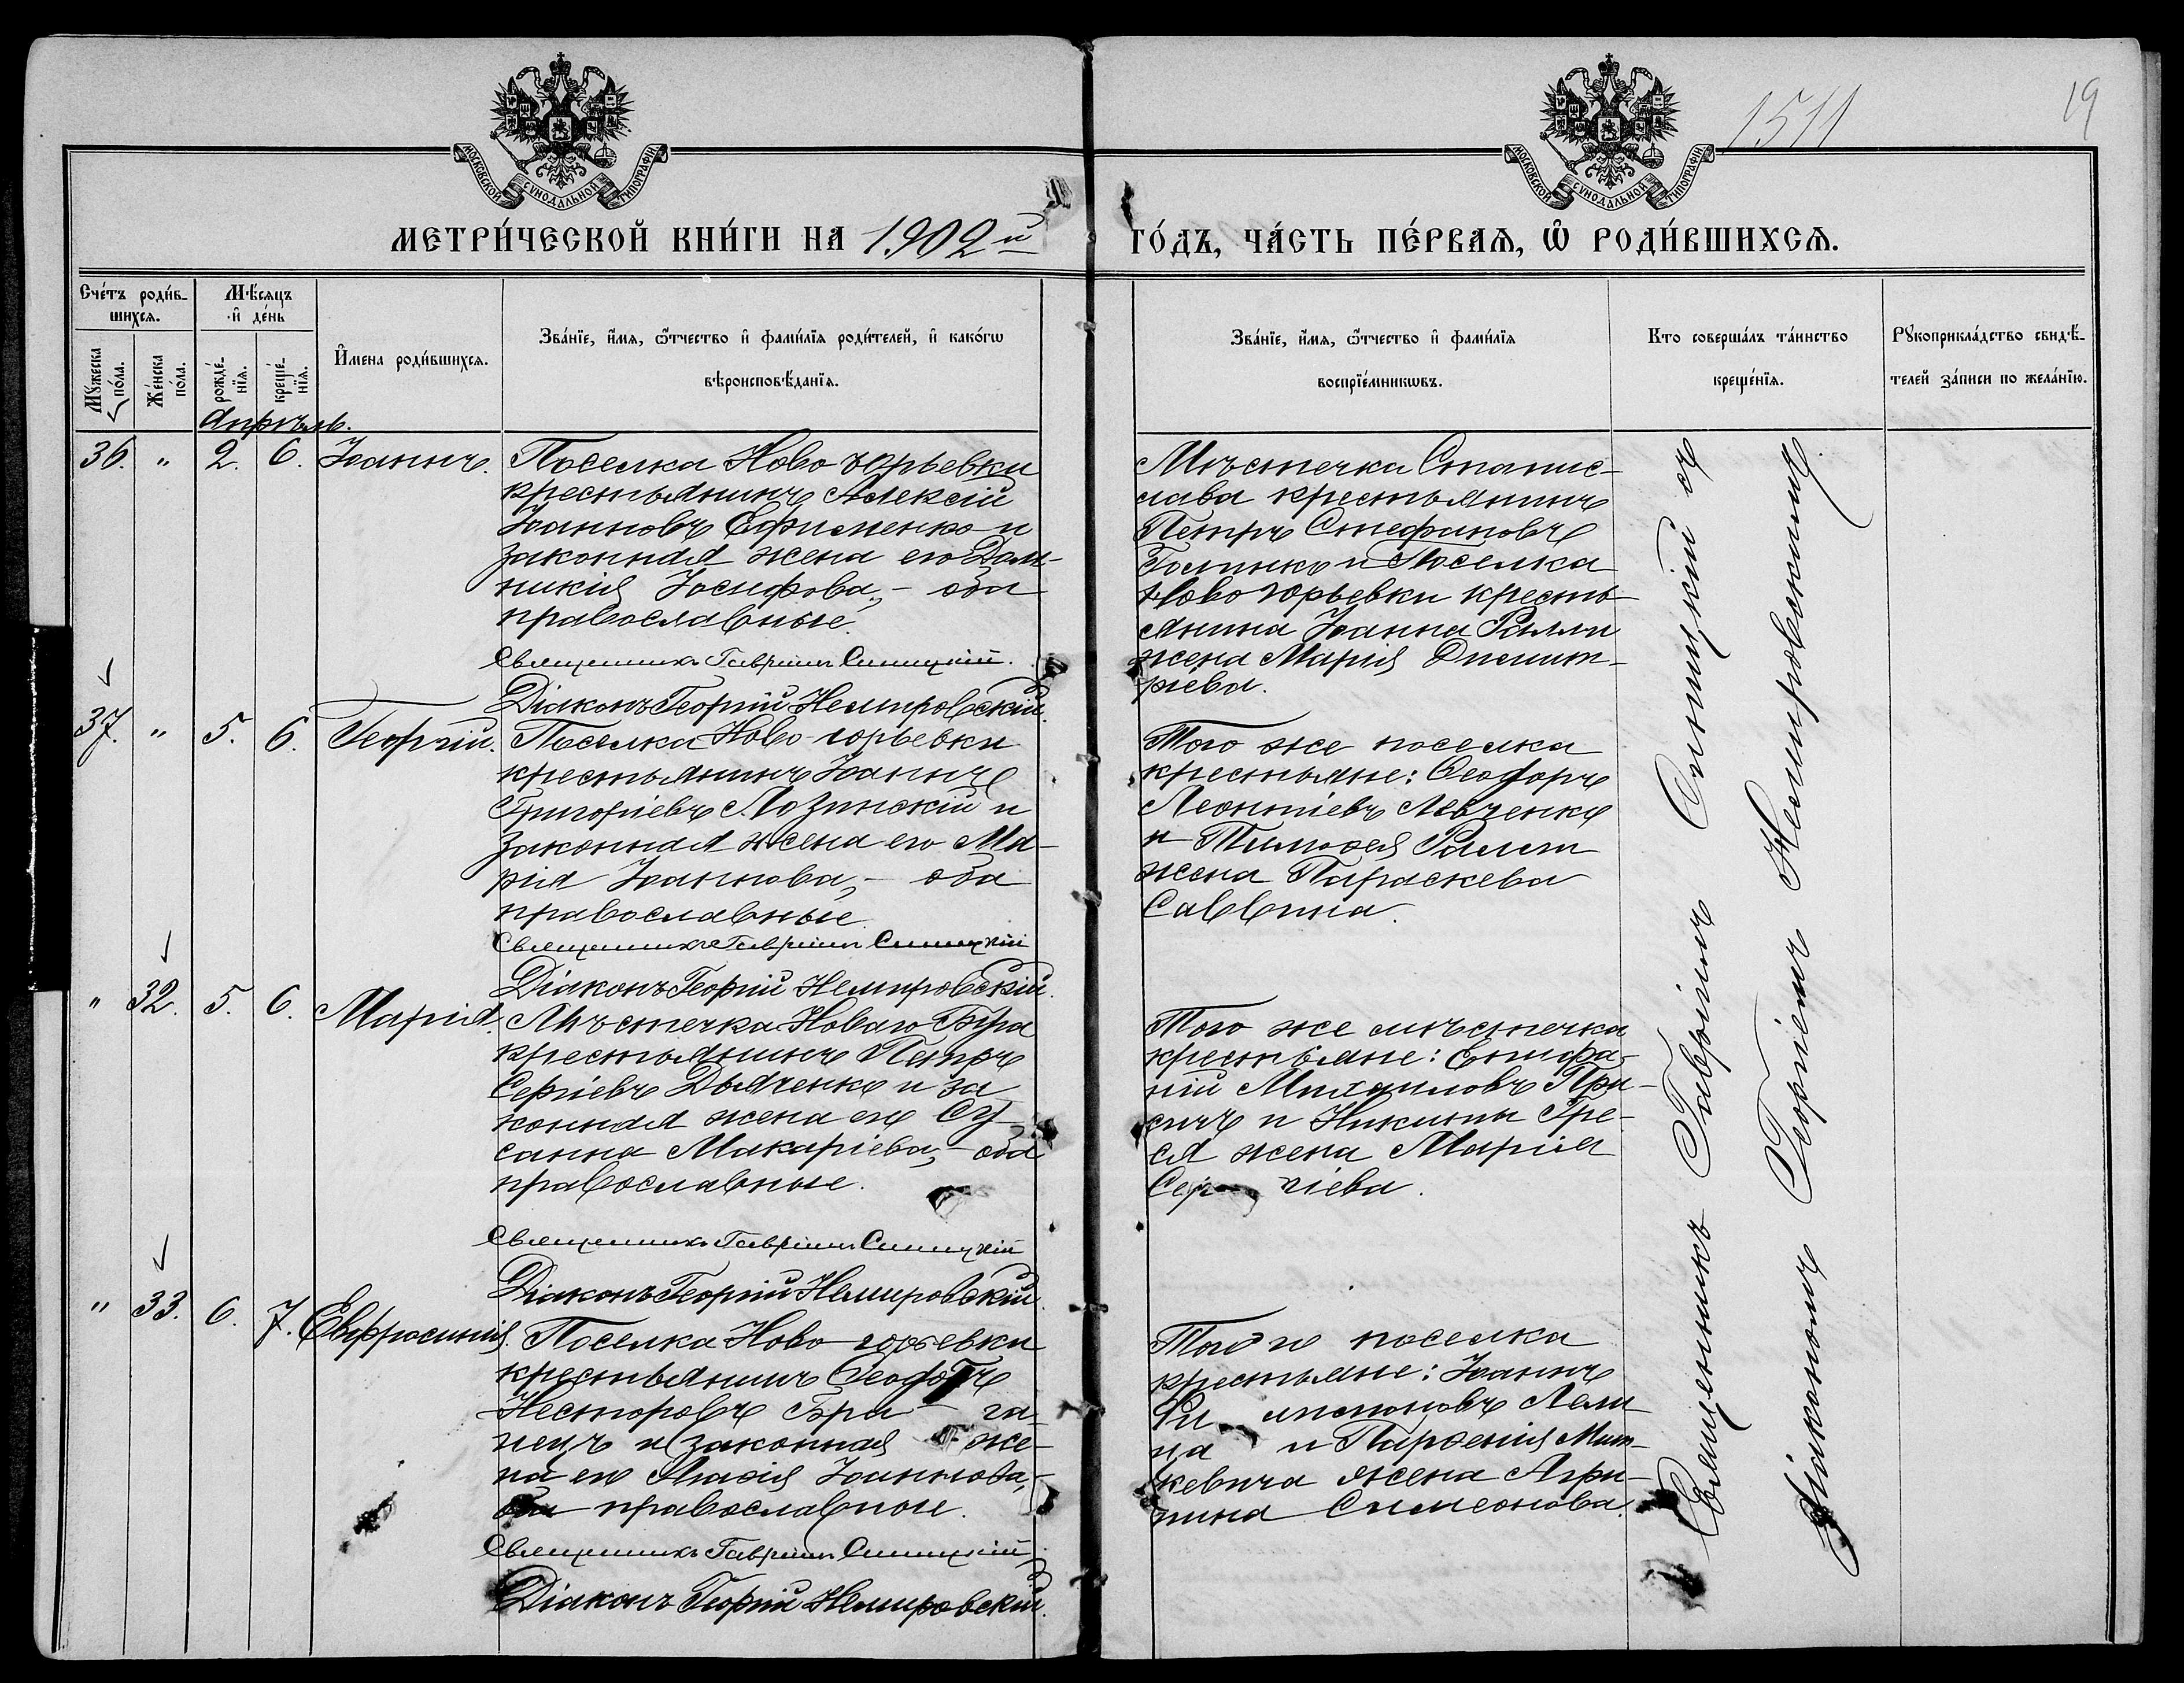 1511
19
МОСКОВСКОЙ СУНОДАЛЬНОЙ ТИПОГРАФІИ
МОСКОВСКОЙ СУНОДАЛЬНОЙ ТИПОГРАФІИ
МЕТРИ́ЧЕСКОЙ КНИ́ГИ НА 1902й ГО́ДЪ, ЧА́СТЬ ПЕ́РВАѦ, Ѡ҆ РОДИ́ВШИХСѦ.
Сче́тъ роди́в-
шихсѧ.
Мꙋ́жеска по́ла.
Же́нска по́ла.
Мѣ́сяцъ
и҆ де́нь
рожде́-
нїѧ.
креще́-
нїѧ.
И҆мена роди́вшихсѧ.
Зва́нїе, и҆́мѧ, ѻ҆́тчество и҆ фами́лїѧ роди́телей, и҆ како́гѡ
вѣроисповѣ́данїѧ.
Зва́нїе, и҆́мѧ, ѻ҆́тчество и҆ фами́лїѧ
воспрїе́мникѡвъ.
Кто соверша́лъ та́инство
креще́нїѧ.
Рꙋкоприкла́дство свидѣ́-
телей за́писи по жела́нїю.
Апрѣль.
36. " 2. 6. Іоаннъ.
Поселка Ново Юрьевки
крестьянинъ Алексій
Іоанновъ Ефименко и
законная жена его Дом-
никія Іосифова, – оба
православные.
Священникъ Гавріилъ Синицкій.
Діаконъ Георгій Немировскій.
Мѣстечка Станис-
лава крестьянинъ
Петръ Стефановъ
и Поселка
Ново Юрьевки кресть-
янина Іоанна
жена Марія Димит-
ріева.
37. " 5. 6. Георгій.
Поселка Ново-юрьевки
крестьянинъ Іоаннъ
Григоріевъ Лозинскій и
законная жена его Ма-
рія Іоаннова, – оба
православные.
Священникъ Гавріилъ Синицкій
Діаконъ Георгій Немировскій.
Того же поселка
крестьяне: Ѳеодоръ
Леонтіевъ Левченко
и Тимоѳея
жена Параскева
Саввина.
" 32. 5. 6. Марія.
Мѣстечка Новаго Буга
крестьянинъ Петръ
Сергіевъ Дьяченко и за
конная жена его Су-
санна Макаріева, – оба
православные.
Священникъ Гавріилъ Синицкій
Діаконъ Георгій Немировскій.
Того же мѣстечка
крестьяне: Епифа-
ній Михаиловъ
и Никиты Гре-
ся жена Марія
Сергіева.
" 33. 6. 7. Евфросинія.
Поселка Ново-юрьевки
крестьянинъ Ѳеодоръ
Несторовъ Брига-
нецъ и законная же-
на его Іоаннова, –
оба православные.
Священникъ Гавріилъ Синицкій
Діаконъ Георгій Немировскій.
поселка
крестьяне: Іоаннъ
и Парѳенія Мит-
кевича жена Агри-
пина Симеонова.
Священникъ Гавріилъ Синицкій съ
Діакономъ Георгіемъ Немировскимъ.